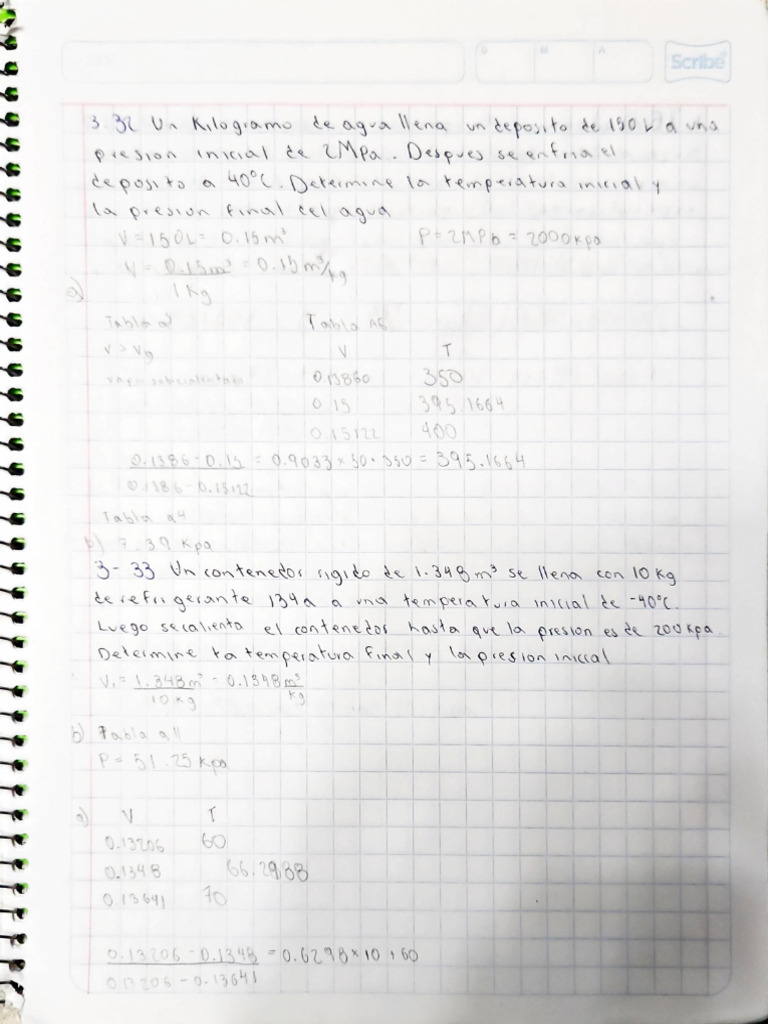 D M A
Scribe
3.32 Un Kilogramo de agua llena un deposito de 150 L a una
presion inicial de 2MPa. Despues se enfria el
deposito a 40°C. Determine la temperatura inicial y
la presion final del agua
V = 150L = 0.15m³ P = 2MPa = 2000kpa
V = 0.15m³ = 0.15 m³/kg
1 Kg
a)
Tabla a Tabla A6
v > vg V T
0.13860 350
0.15 395.1664
0.15122 400
0.1386 - 0.15 = 0.9033 × 50 + 350 = 395.1664
0.1386 - 0.15122
Tabla a4
b) 7.39 Kpa
3-33 Un contenedor rigido de 1.348 m³ se llena con 10 Kg
de refrigerante 134a a una temperatura inicial de -40°C.
Luego se calienta el contenedor hasta que la presion es de 200kpa.
Determine ta temperatura Final y la presion inicial
V₁ = 1.348m³ = 0.1348 m³
10 kg kg
b) Tabla a11
P = 51.25 Kpa
a) V T
0.13206 60
0.1348 66.2988
0.13641 70
0.13206 - 0.1348 = 0.6298 × 10 + 60
0.13206 - 0.13641